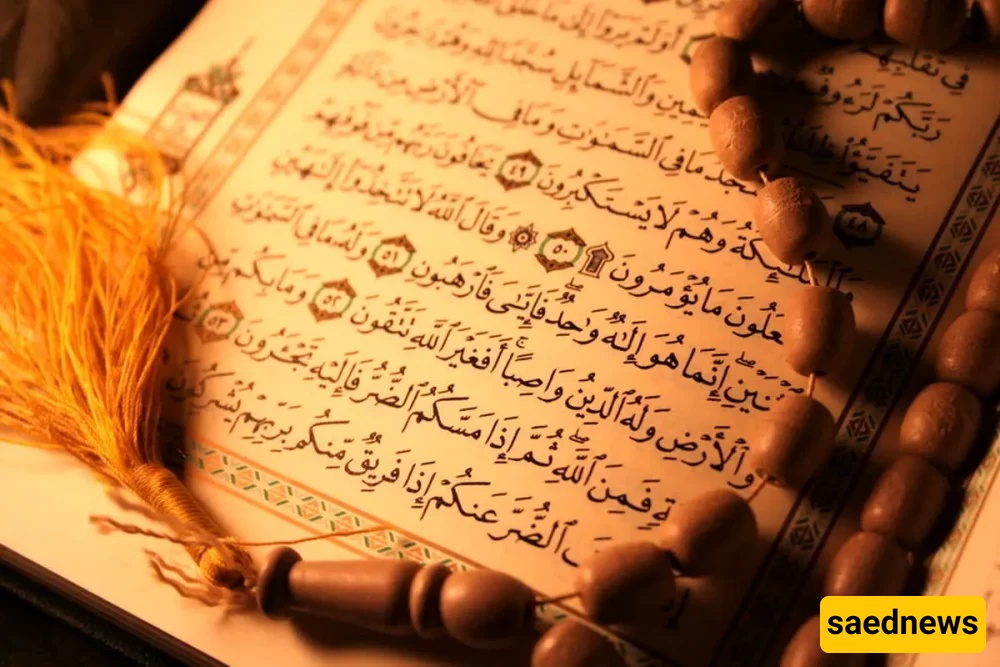 فِي تَقَلُّبِهِمْ
رَبَّكُمْ لَرَءُوفٌ أَوَلَمْ يَرَوْا۟ إِلَىٰ مَا خَلَقَ
يَتَفَيَّؤُا۟ وَٱلشَّمَآئِلِ سُجَّدًا لِّلَّهِ وَهُمْ دَٰخِرُونَ
٤٨ مَا فِي ٱلسَّمَٰوَٰتِ وَمَا فِي ٱلْأَرْضِ مِن
وَهُمْ لَا يَسْتَكْبِرُونَ ٤٩ يَخَافُونَ رَبَّهُم مِّن فَوْقِهِمْ
مَا يُؤْمَرُونَ ۩ ٥٠ ۞ وَقَالَ ٱللَّهُ لَا تَتَّخِذُوٓا۟ إِلَٰهَيْنِ
إِنَّمَا هُوَ إِلَٰهٌ وَٰحِدٌ فَإِيَّٰيَ فَٱرْهَبُونِ ٥١ وَلَهُۥ مَا فِي ٱلسَّمَٰوَٰتِ
وَٱلْأَرْضِ وَلَهُ ٱلدِّينُ وَاصِبًا أَفَغَيْرَ ٱللَّهِ تَتَّقُونَ ٥٢ وَمَا بِكُم مِّن
فَمِنَ ٱللَّهِ ثُمَّ إِذَا مَسَّكُمُ ٱلضُّرُّ فَإِلَيْهِ تَجْـَٔرُونَ ٥٣
ٱلضُّرَّ عَنكُمْ إِذَا فَرِيقٌ مِّنكُم بِرَبِّهِمْ يُشْرِكُونَ
saednews